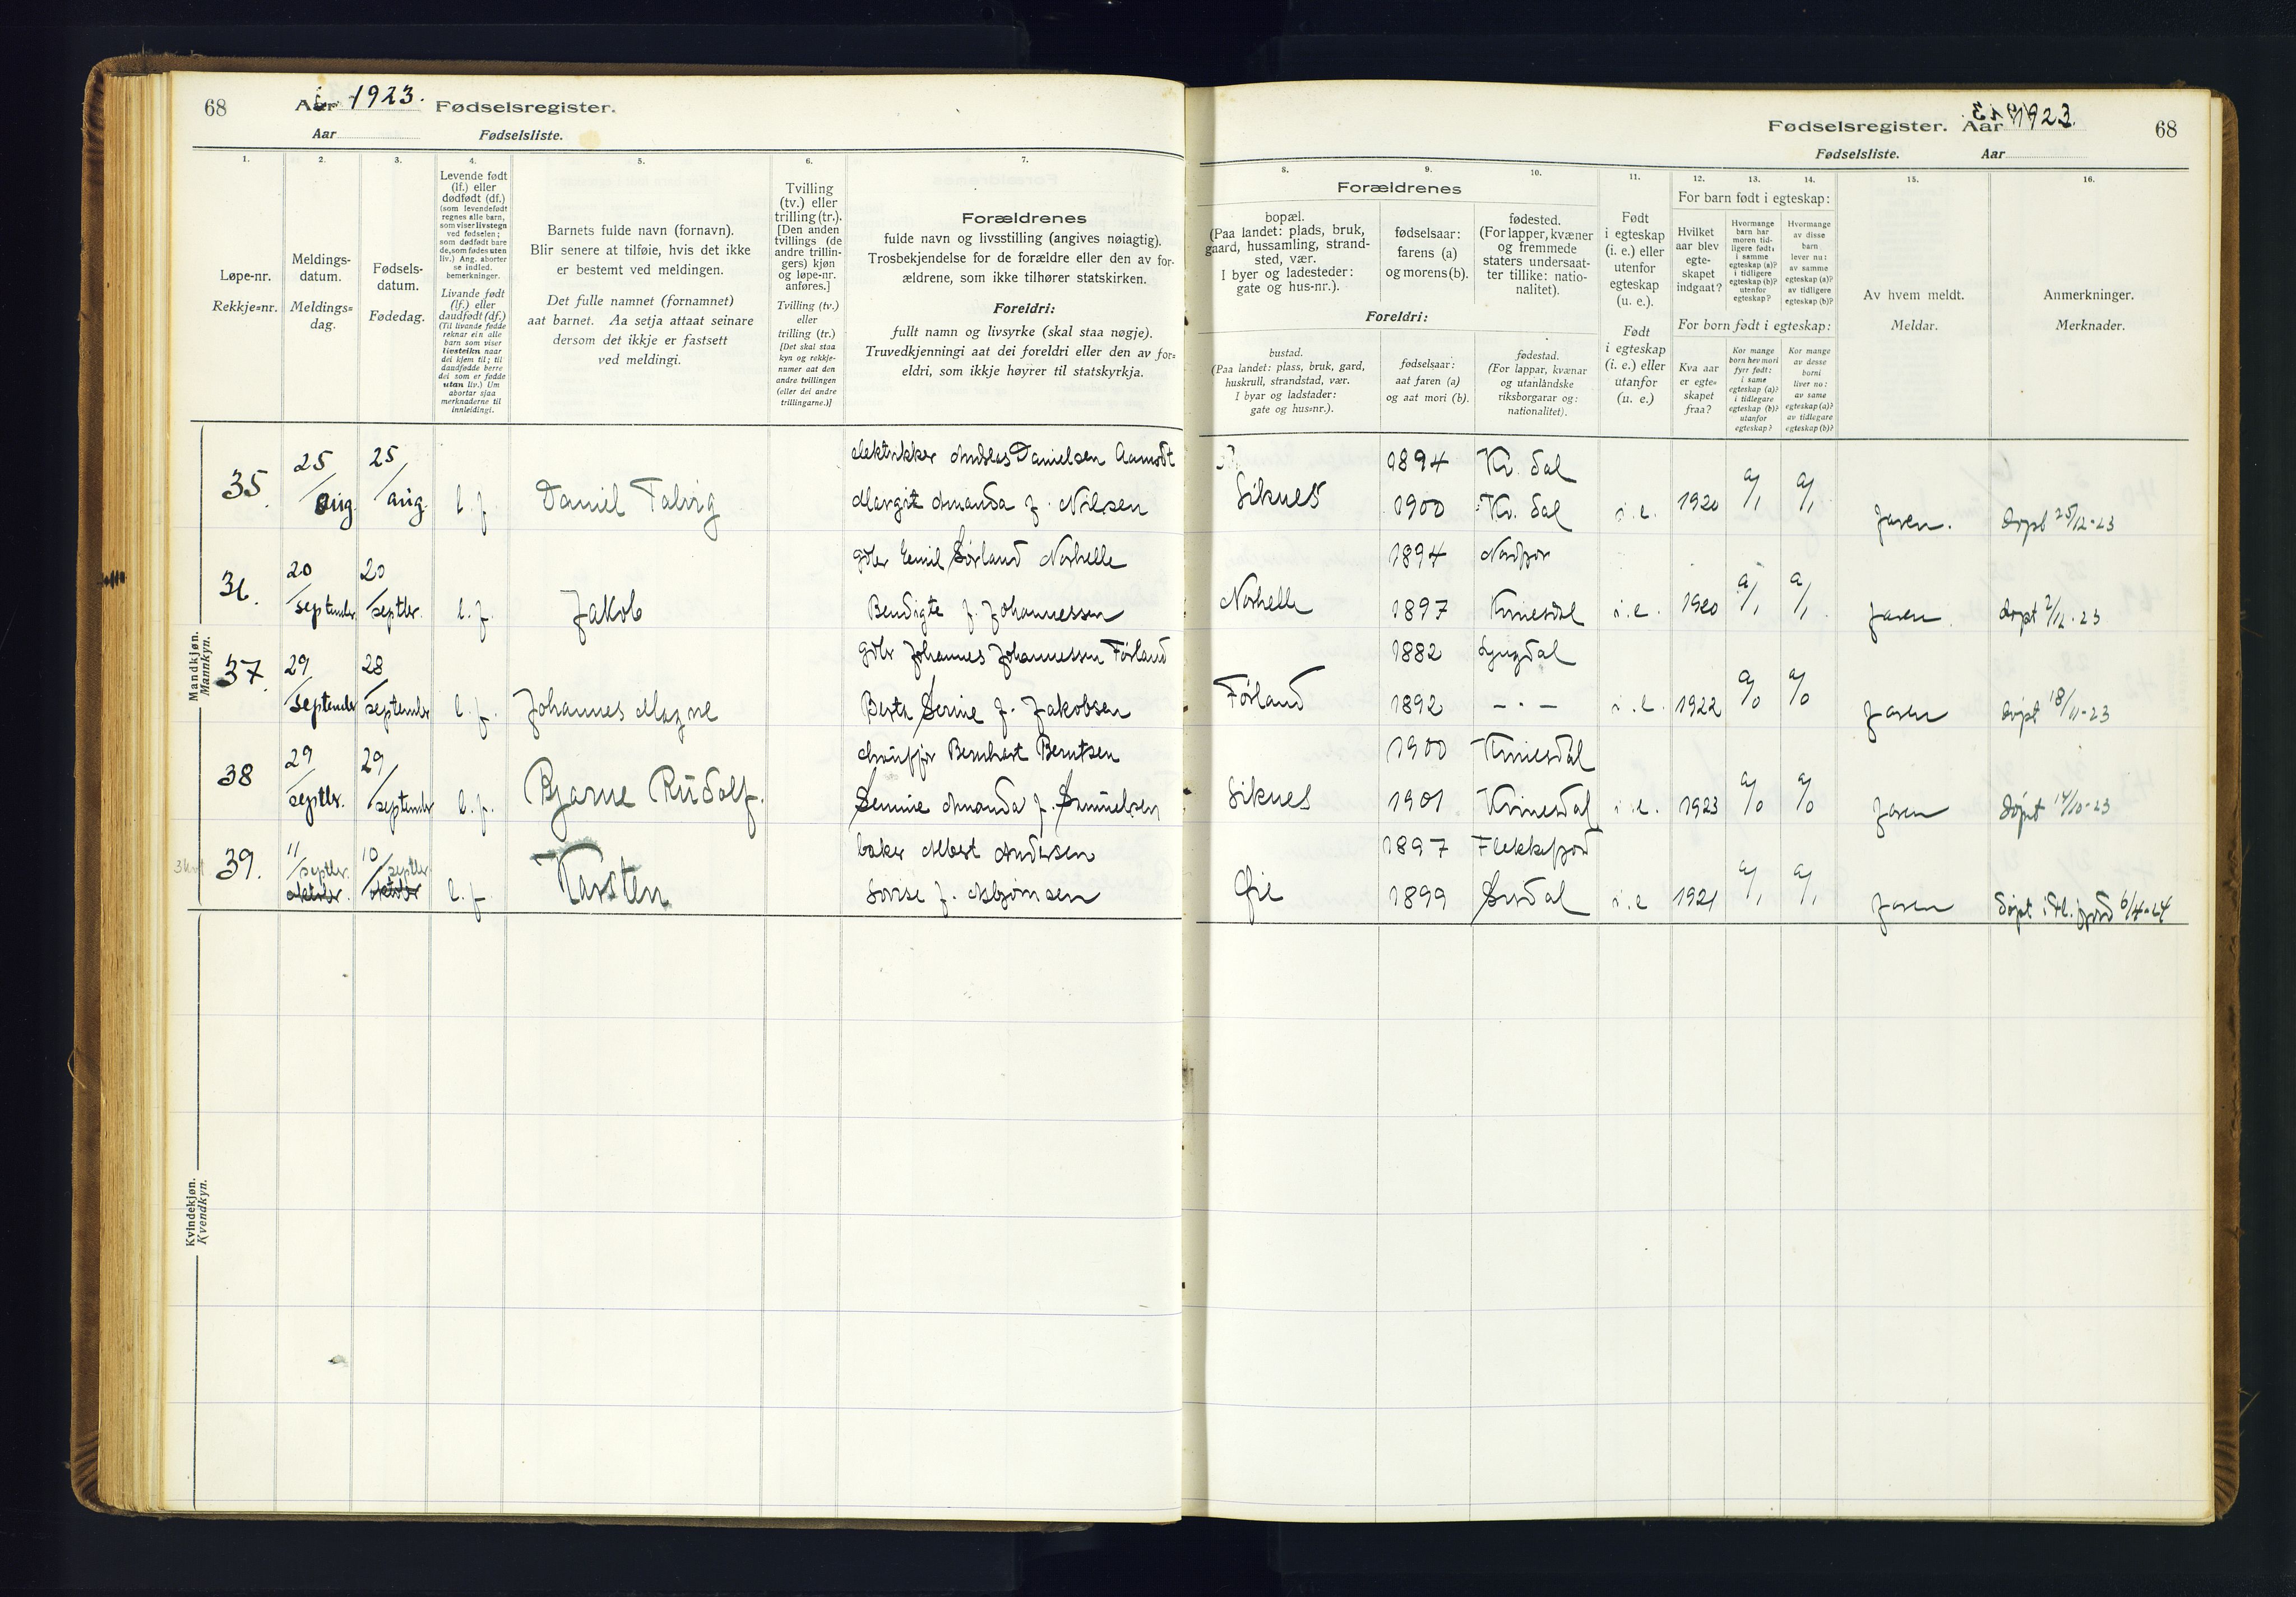 68 Aar 1923. Fødselsregister.
Aar Fødselsliste.
Fødselsregister. Aar 1923. 68
Fødselsliste. Aar
1. 2. 3. 4. 5. 6. 7. 8. 9. 10. 11. 12. 13. 14. 15. 16.
Løpe-nr.
Rekkje=nr.
Meldings-
datum.
Meldings=
dag.
Fødsels-
datum.
Fødedag.
Levende født
(lf.) eller
dødfødt (df.)
(som levendefødt
regnes alle barn,
som viser livstegn
ved fødselen;
som dødfødt bare
de, som fødes uten
liv.) Ang. aborter
se indled.
bemerkninger.
Livande født
(lf.) eller
daudfødt (df.)
(Til livande fødde
reknar ein alle
barn som viser
livsteikn naar
dei kjem til; til
daudfødde berre
dei som er fødde
utan liv.) Um
abortar sjaa
merknaderne til
innleidingi.
Barnets fulde navn (fornavn).
Blir senere at tilføie, hvis det ikke
er bestemt ved meldingen.
Det fulle namnet (fornamnet)
aat barnet. Aa setja attaat seinare
dersom det ikkje er fastsett
ved meldingi.
Tvilling
(tv.) eller
trilling (tr.).
[Den anden
tvillings (de
andre trillin-
gers) kjøn
og løpe-nr.
anføres.]
Tvilling (tv.)
eller
trilling (tr.)
[Det skal staa
kyn og rekkje-
numer aat den
andre tvillingen
(eller dei andre
trillingarne.)]
Forældrenes
fulde navn og livsstilling (angives nøiagtig).
Trosbekjendelse for de forældre eller den av for-
ældrene, som ikke tilhører statskirken.
Foreldri:
fullt namn og livsyrke (skal staa nøgje).
Truvedkjenningi aat dei foreldri eller den av for=
eldri, som ikkje høyrer til statskyrkja.
Forældrenes
bopæl.
(Paa landet: plads, bruk,
gaard, hussamling, strand-
sted, vær.
I byer og ladesteder:
gate og hus-nr.).
fødselsaar:
farens (a)
og morens (b).
fødested.
(For lapper, kvæner
og fremmede
staters undersaat-
ter tillike: natio-
nalitet).
Foreldri:
bustad.
(Paa landet: plass, bruk, gard,
huskrull, strandstad, vær.
I byar og ladstader:
gate og hus=nr.).
fødselsaar:
aat faren (a)
og aat mori (b).
fødestad.
(For lappar, kvænar
og utanlandske
riksborgarar og:
nationalitet).
Født
i egteskap
(i. e.) eller
utenfor
egteskap
(u. e.).
Født
i egteskap
(i. e.) eller
utanfor
(u. e.)
For barn født i egteskap:
Hvilket
aar blev
egte-
skapet
indgaat?
Hvormange
barn har
moren tid-
ligere født:
i samme
egteskap (a)?
i tidligere
egteskap (b)?
utenfor
egteskap?
Hvormange
av disse
barn
lever nu:
av samme
egteskap (a)?
av tidligere
egteskap (b)?
For born født i egteskap:
Kva aar
er egte=
skapet
fraa?
Kor mange
born hev mori
fyrr født:
i same
egteskap (a)?
i tidlegare
egteskap (b)?
utanfor
egteskap?
Kor mange
av desse
borni
liver no:
av same
egteskap (a)?
av tidlegare
egteskap (b)?
Av hvem meldt.
Meldar.
Anmerkninger.
Merknader.
Mandkjøn.
Mannkyn.
35. 25/aug. 25/aug. l. f. Daniel Talvig
elektrikker Andreas Danielsen Aamodt 1894 Kv. dal
Margit Amanda f. Nilsen Liknes 1900 Kv. dal i. e. 1920 a/1 a/1 faren. døpt 25/12-23
36. 20/september 20/septbr. l. f. Jakob
gdbr Emil Sørland Norhelle 1894
Bendigte f. Johannessen Norhelle 1897 Kvinesdal i. e. 1920 a/1 a/1 faren døpt 2/12-23
37. 29/september 28/september l. f. Johannes Magne
gdbr Johannes Johannessen Førland 1882 Lyngdal
Berta Serine f. Jakobsen Førland 1892 - " - i. e. 1922 a/0 a/0 faren døpt 18/11-23
38 29/septbr. 29/september l. f. Bjarne Rudolf.
chauffør Bernhart Berntsen 1900 Kvinesdal
Semine Amanda f. Samuelsen Liknes 1901 Kvinesdal i. e. 1923 a/0 a/0 faren døpt 14/10-23
39. 11/septbr. oktober. 10/septbr. oktober l. f. Karsten
baker Albert Andersen 1897 Flekkefjord
Lovise f. Asbjørnsen Øie 1899 Sirdal i. e 1921 a/1 a/1 faren døpt i Fl. fjord 6/4-24
Kvindekjøn.
Kvendkyn.